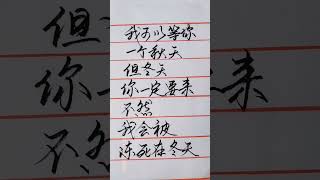 我可以等你
一个秋天
但冬天
你一定要来
不然
我会被
冻死在冬天